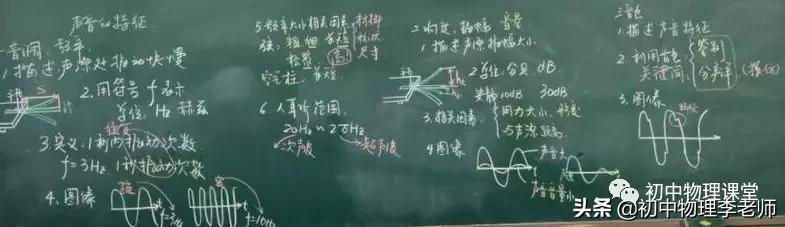 声音的特征
一音调、频率
1.描述声源处振动快慢
2.用符号 f 表示
单位: Hz 赫兹
3.定义:1秒内振动次数
f=3Hz,1秒振动次数
4.图像
f=3Hz
f=10Hz
5.频率大小相关因素
材料
尺寸
弦: 粗细 长短
松紧
空气柱: 长短
6.人耳听范围
20Hz~2万Hz
次声波
超声波
振幅 音量
1.描述声源振幅大小
2.单位:分贝 dB
安静 10dB 30dB
3.相关因素
用力大小
与声源距离
4.图像
声音大
声音音量小
三音色
1.描述声音特征
2.利用音色
关注词
分声样
(模仿)
3.图像
初中物理课堂
头条@初中物理李老师